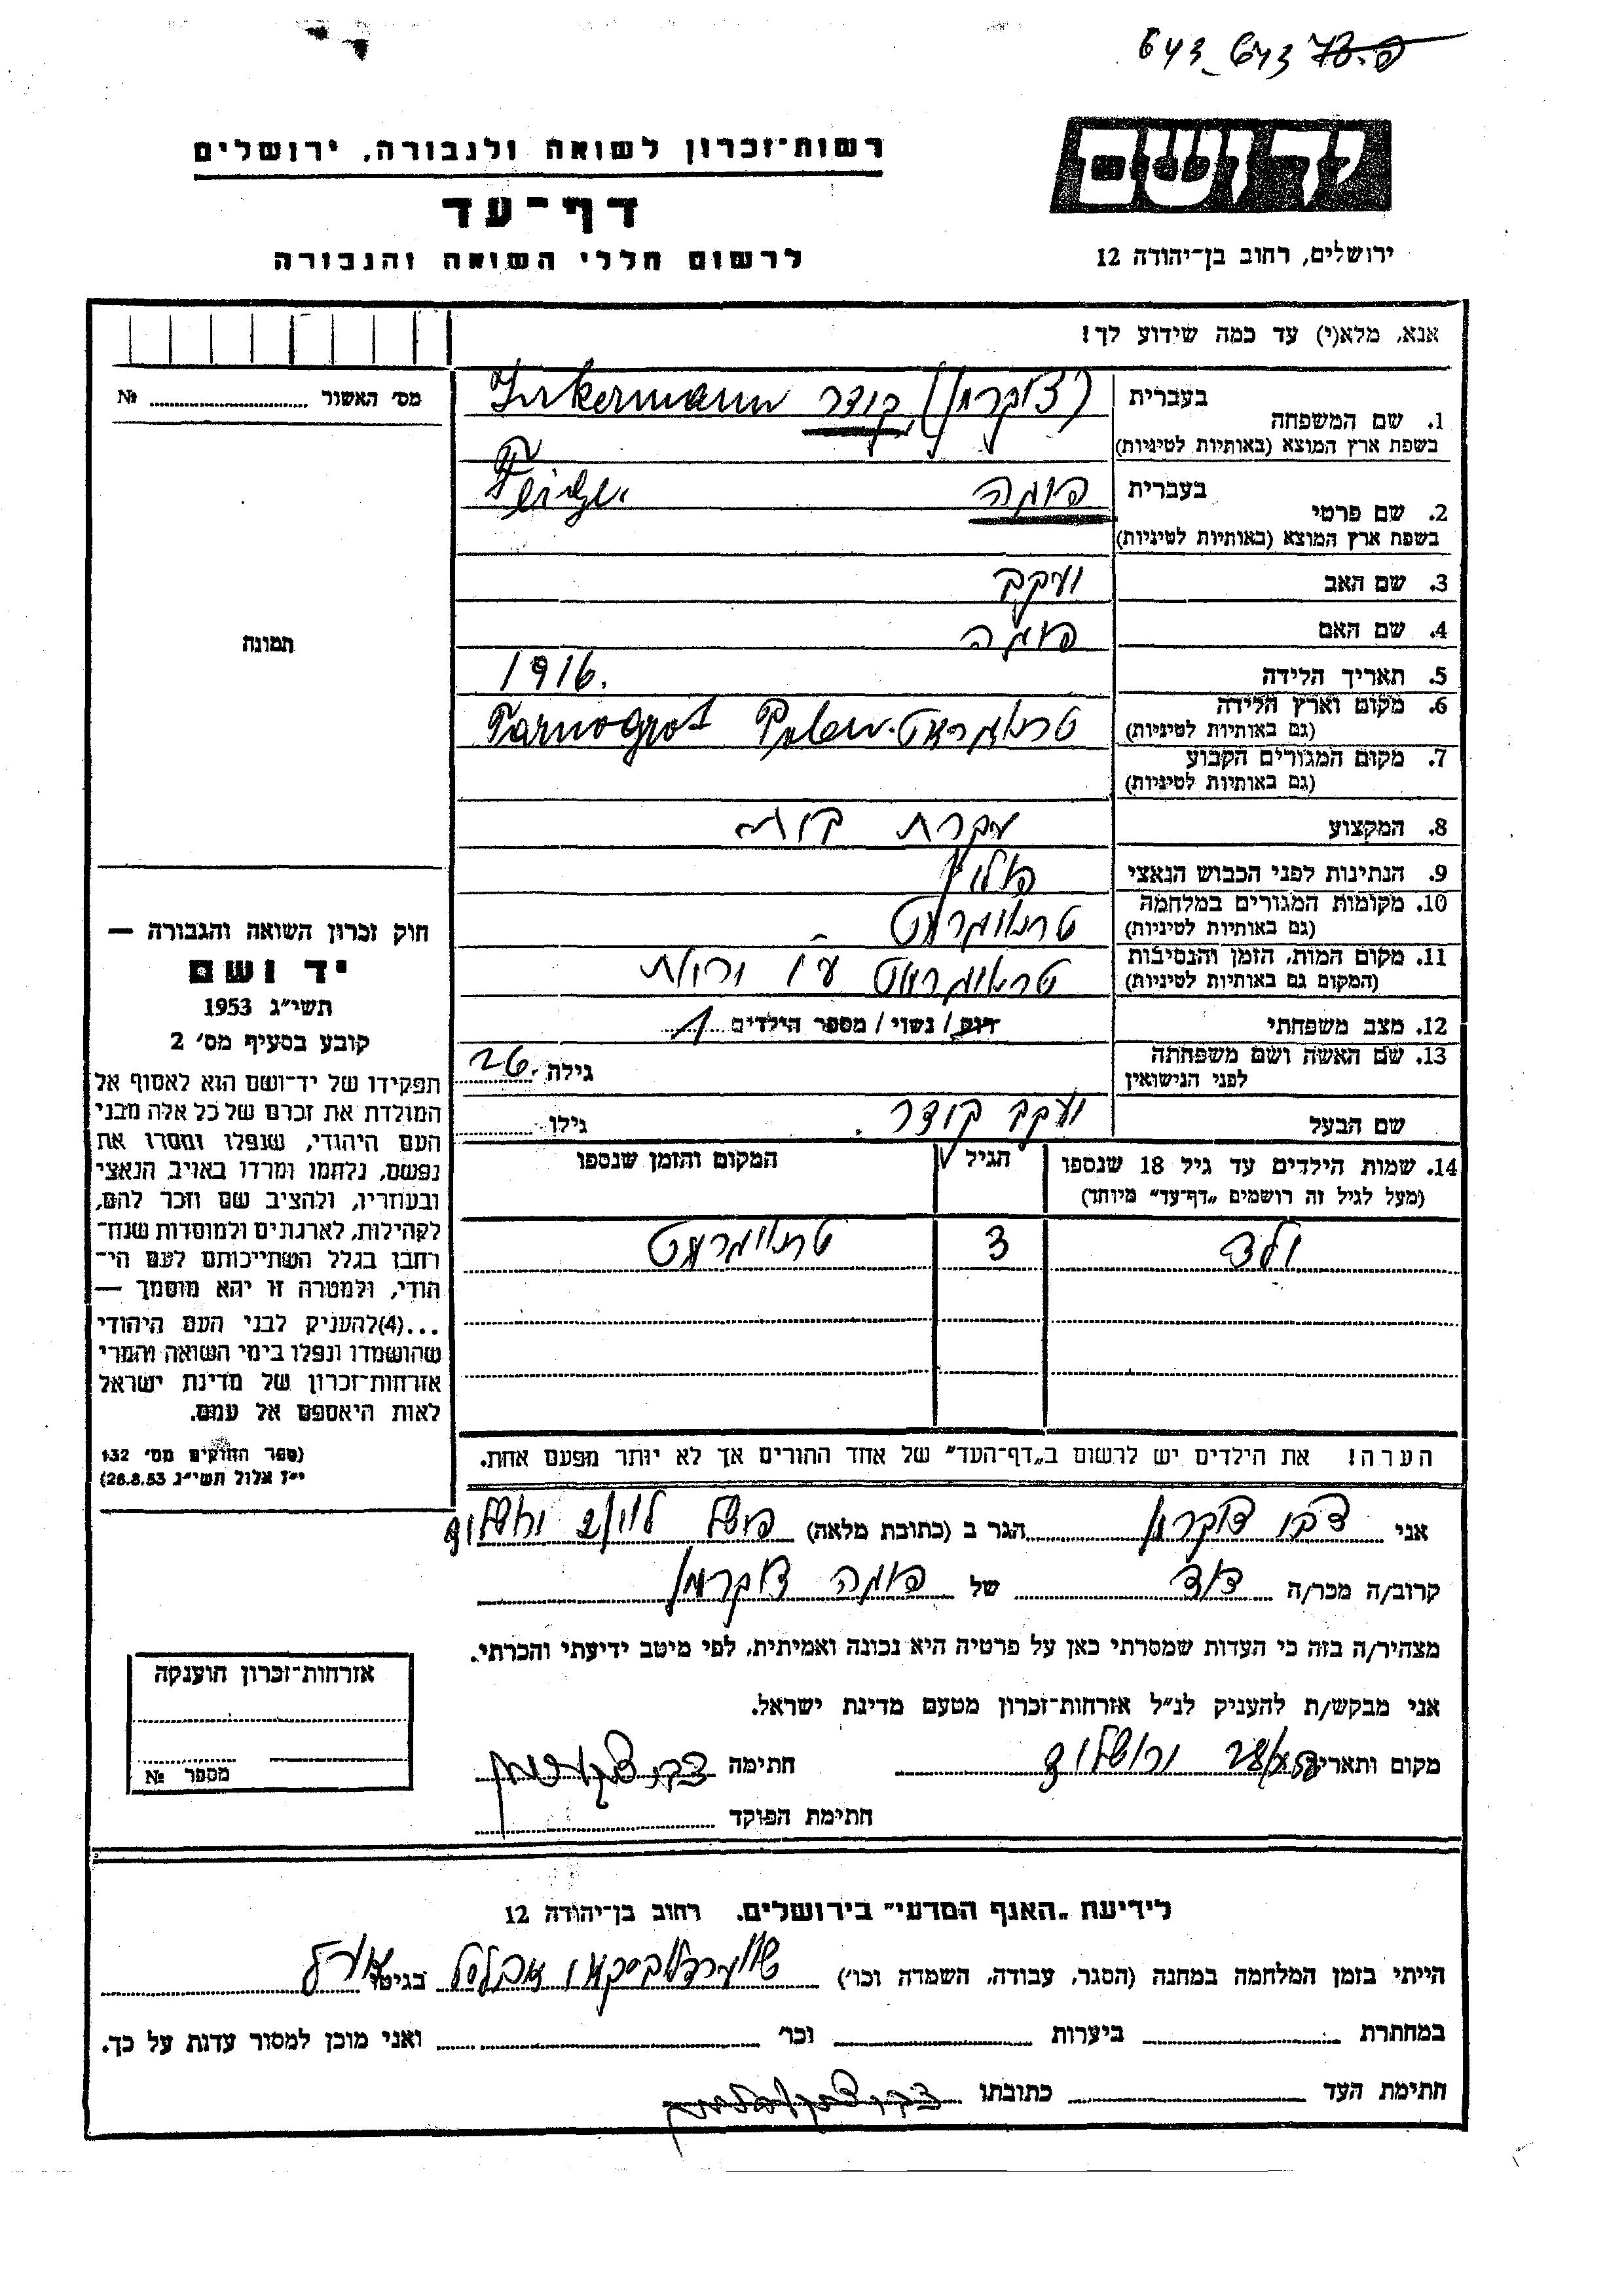 643_643 73.פ
רשות־זכרון לשואה ולגבורה, ירושלים
יד ושם
דף־עד
לרשום חללי השואה והגבורה
ירושלים, רחוב בן־יהודה 12
אנא, מלא(י) עד כמה שידוע לך!
מס׳ האשור № 
1. שם המשפחה בעברית (צוקרמן) קודר Zukermann
בשפת ארץ המוצא (באותיות לטיניות)
2. שם פרטי בעברית פיגה Feige
בשפת ארץ המוצא (באותיות לטיניות)
3. שם האב יעקב
4. שם האם
תמונה
5. תאריך הלידה 1916.
6. מקום וארץ הלידה Tarnogrot Polen
(גם באותיות לטיניות)
7. מקום המגורים הקבוע
(גם באותיות לטיניות)
8. המקצוע עקרת בית
9. הנתינות לפני הכבוש הנאצי פולין
10. מקומות המגורים במלחמה
(גם באותיות לטיניות)
11. מקום המות, הזמן והנסיבות
(המקום גם באותיות לטיניות)
12. מצב משפחתי רווק / נשוי / מספר הילדים 1
13. שם האשה ושם משפחתה
לפני הנישואין
גילה 26.
שם הבעל יעקב קודר. גילו
14. שמות הילדים עד גיל 18 שנספו הגיל המקום והזמן שנספו
(מעל לגיל זה רושמים „דף־עד״ מיוחד)
ילד 3
הערה! את הילדים יש לרשום ב„דף־העד״ של אחד ההורים אך לא יותר מפעם אחת.
חוק זכרון השואה והגבורה —
יד ושם
תשי״ג 1953
קובע בסעיף מס׳ 2
תפקידו של יד־ושם הוא לאסוף אל
המולדת את זכרם של כל אלה מבני
העם היהודי, שנפלו ומסרו את
נפשם, נלחמו ומרדו באויב הנאצי
ובעוזריו, ולהציב שם וזכר להם,
לקהילות, לארגונים ולמוסדות שנח־
רבו בגלל השתייכותם לעם הי־
הודי, ולמטרה זו יהא מוסמך —
...(4)להעניק לבני העם היהודי
שהושמדו ונפלו בימי השואה והמרי
אזרחות־זכרון של מדינת ישראל
לאות היאספם אל עמם.
(ספר החוקים מס׳ 132
י״ז אלול תשי״ג 28.8.53)
אני צבי צוקרמן הגר ב (כתובת מלאה) ירושלים
קרוב/ה מכר/ה דוד של פיגה צוקרמן
מצהיר/ה בזה כי העדות שמסרתי כאן על פרטיה היא נכונה ואמיתית, לפי מיטב ידיעתי והכרתי.
אני מבקש/ת להעניק לנ״ל אזרחות־זכרון מטעם מדינת ישראל.
מקום ותאריך ירושלים חתימה
חתימת הפוקד
אזרחות־זכרון הוענקה
מספר №
לידיעת „האגף המדעי״ בירושלים, רחוב בן־יהודה 12
הייתי בזמן המלחמה במחנה (הסגר, עבודה, השמדה וכו׳) בגיטו
במחתרת ביערות וכו׳ ואני מוכן למסור עדות על כך.
חתימת העד כתובתו